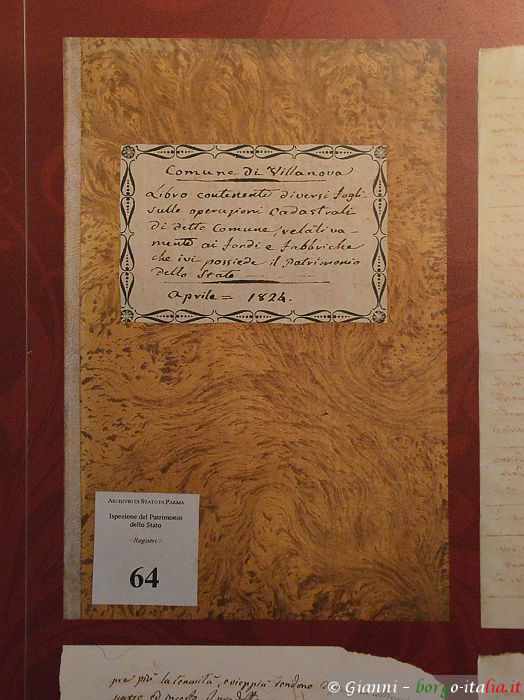 Comune di Villanova
Libro contenente diversi fogli
sulle operazioni Cadastrali
di detto Comune, relativa-
mente ai fondi e fabbriche
che ivi possiede il patrimonio
dello Stato
Aprile = 1824.
ARCHIVIO DI STATO DI PARMA
Ispezione del Patrimonio
dello Stato
<Registri>
64
pre più la tenuità, e vieppiù rendono
© Gianni - borgo-italia.it